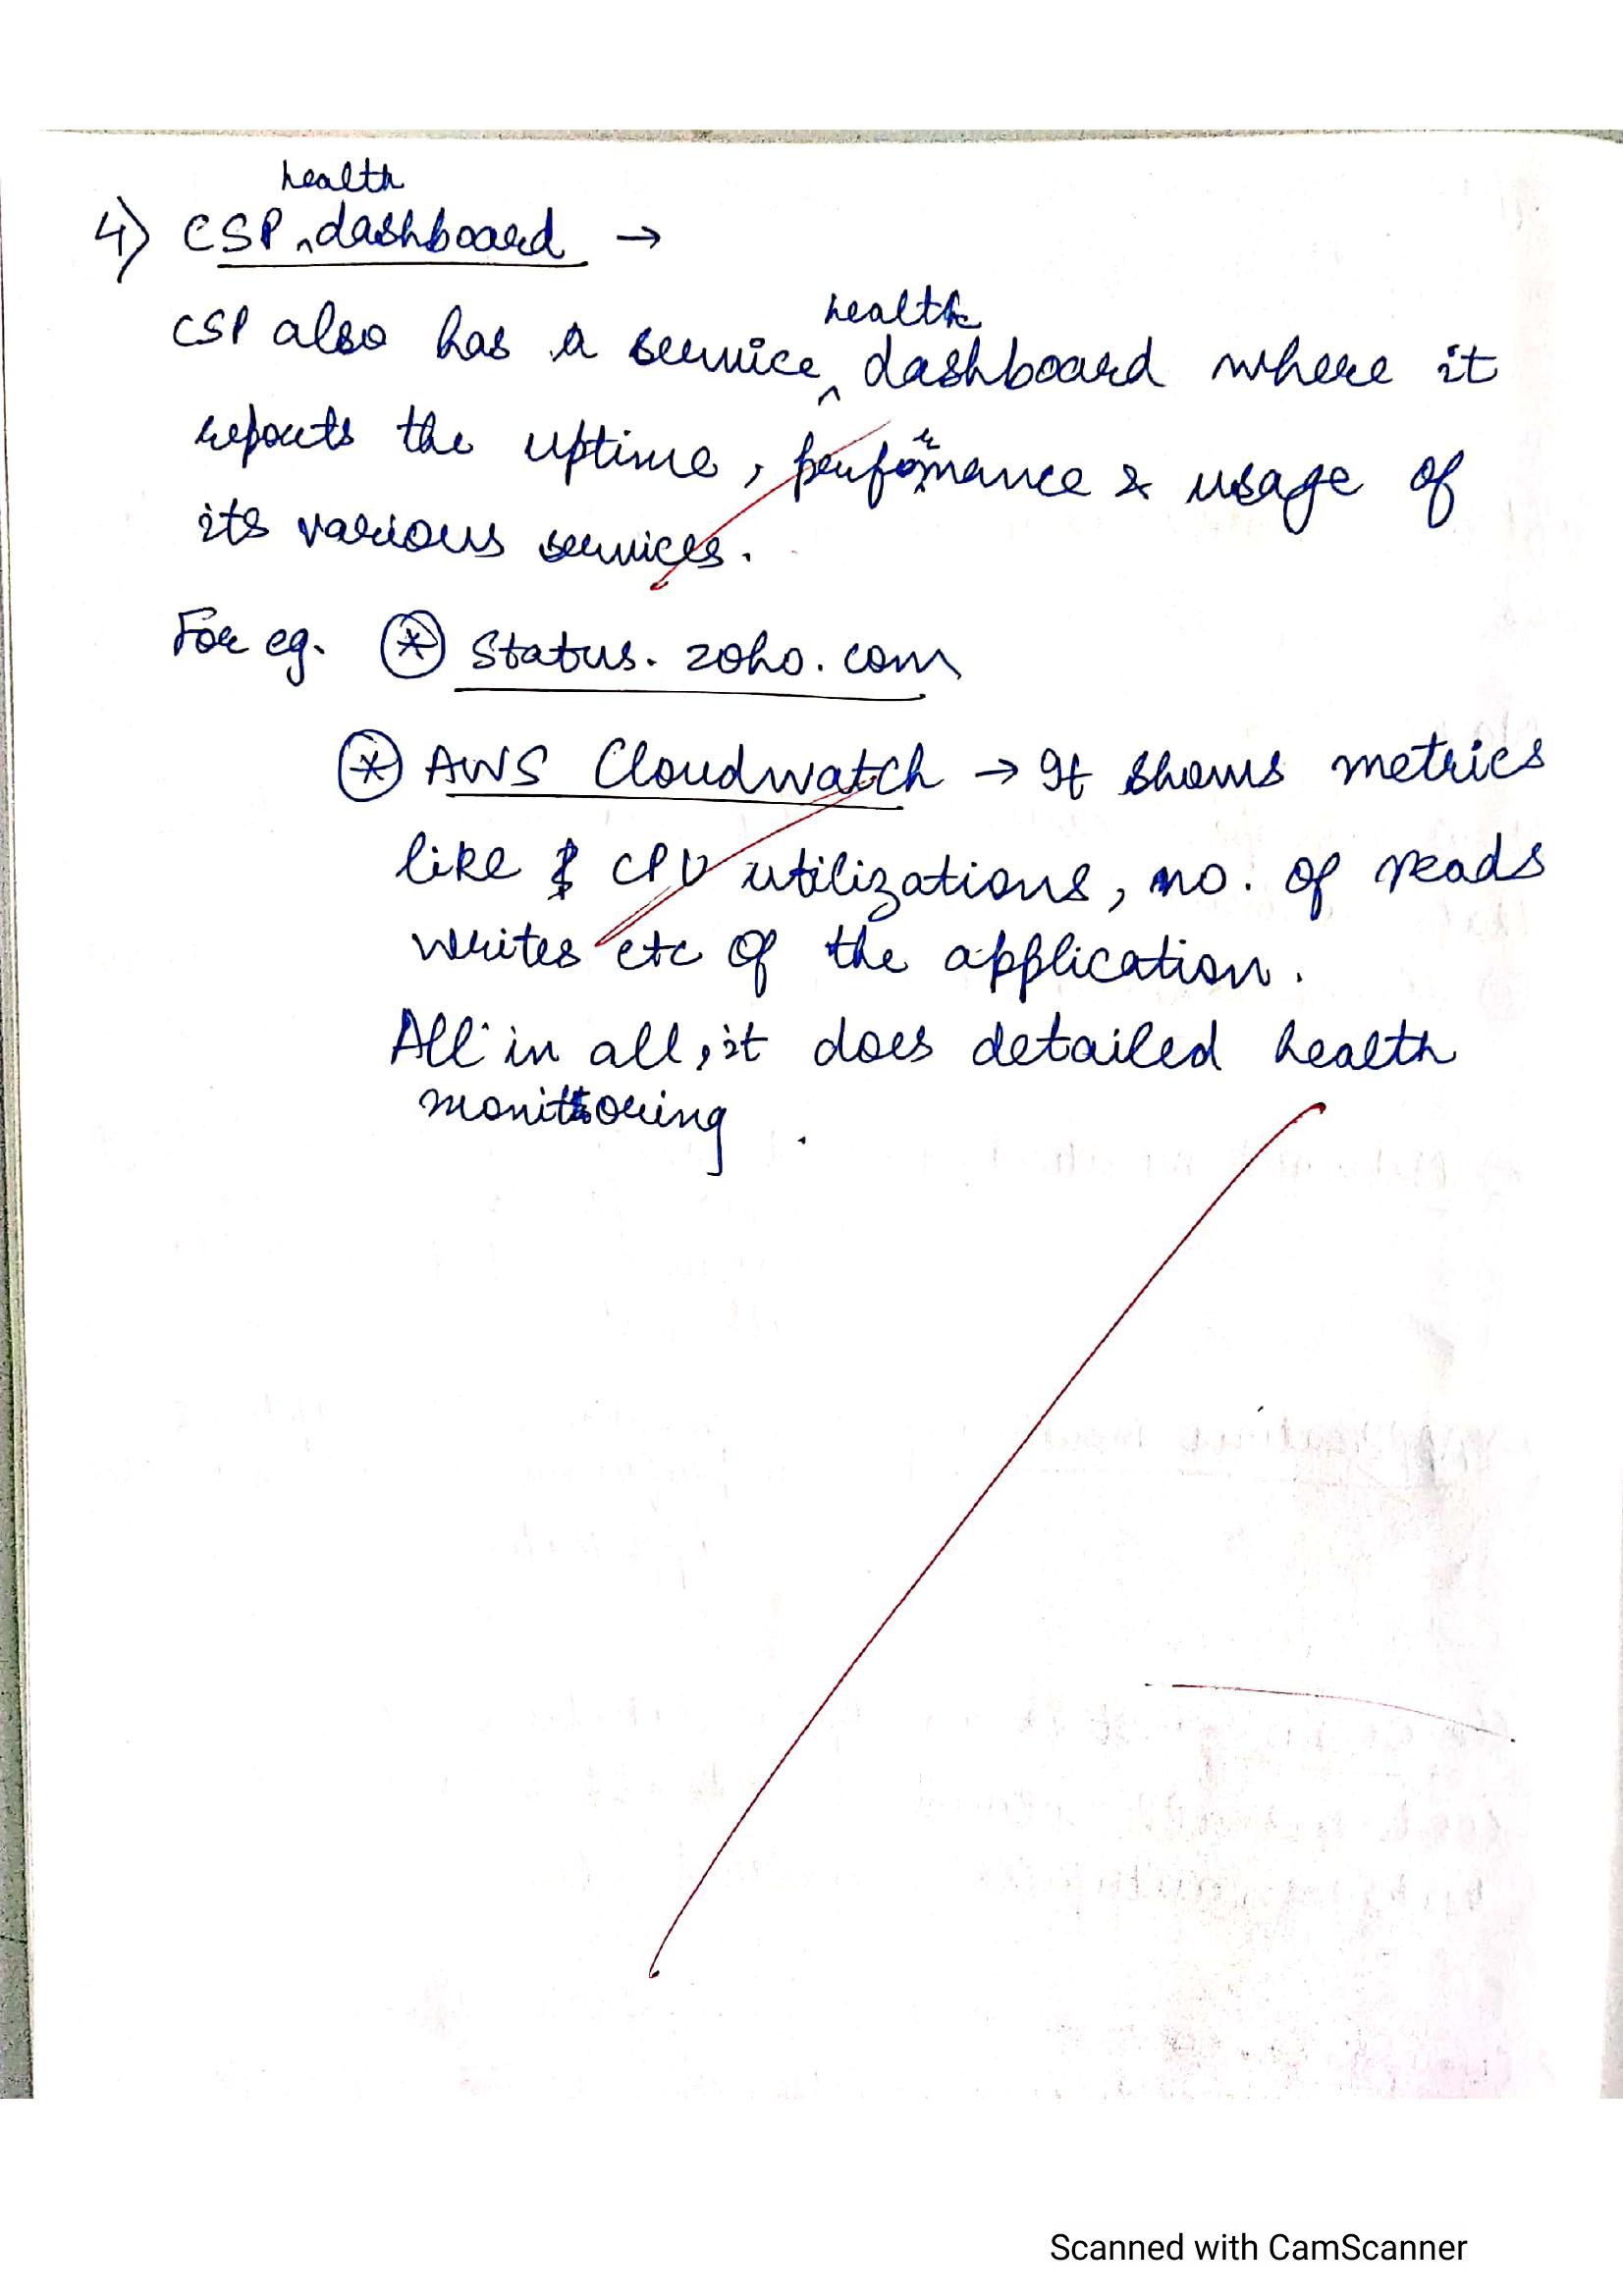 4) CSP health dashboard →
CSP also has a service health dashboard where it
reports the uptime, performance & usage of
its various services.
For eg. * Status. zoho. com
* AWS Cloudwatch → It shows metrics
like CPU utilizations, no. of reads
writes etc of the application.
All in all, it does detailed health
monitoring.
Scanned with CamScanner